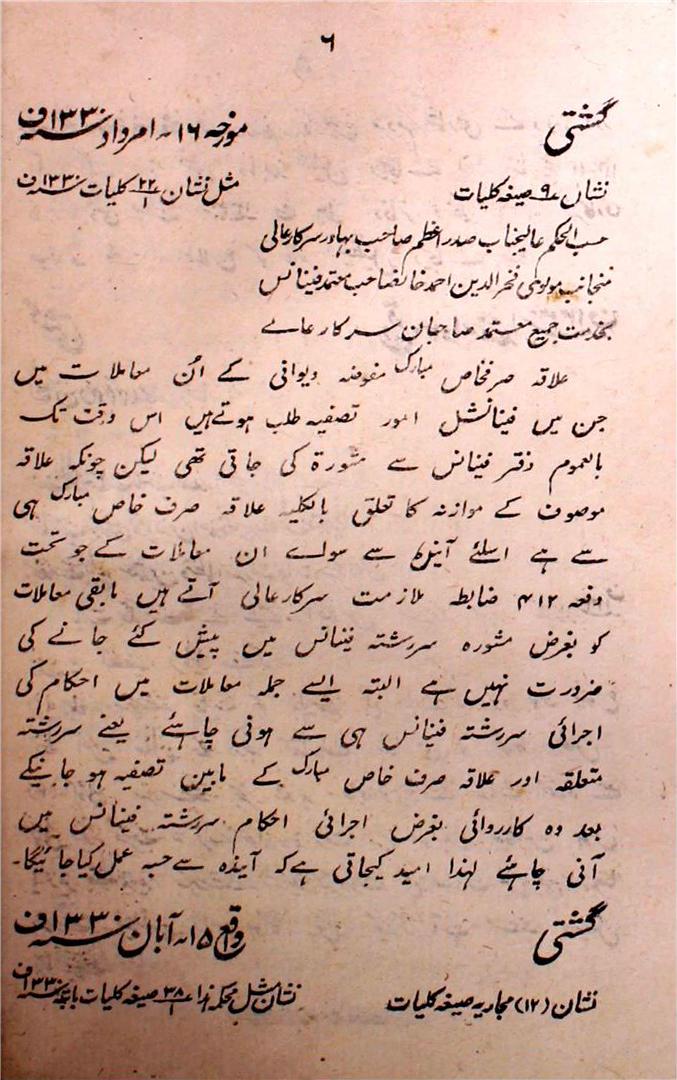 ۶
گشتی مورخہ ۱۶۔ امرداد سنہ ۱۳۳۰ف
نشان ۹ صیغہ کلیات مثل نشان ۲۲/۱ کلیات سنہ ۱۳۳۰ف
حسب الحکم عالیجناب صدر اعظم صاحب بہادر سرکار عالی
منجانب مولوی فخر الدین احمد خانصاحب معتمد فینانس
بخدمت جمیع معتمد صاحبان سرکار عالے
علاقہ صرفخاص مبارک مفوضہ دیوانی کے اُن معاملات میں
جن میں فینانشل امور تصفیہ طلب ہوتے ہیں اس وقت تک
بالعموم دفتر فینانس سے مشورۃ کی جاتی تھی لیکن چونکہ علاقہ
موصوف کے موازنہ کا تعلق بالکلیہ علاقہ صرف خاص مبارک ہی
سے ہے اسلئے آیندہ سے سوائے ان معاملات کے جو تحت
دفعہ ۴۱۲ ضابطہ ملازمت سرکار عالی آتے ہیں مابقی معاملات
کو بغرض مشورہ سررشتہ فینانس میں پیش کئے جانے کی
ضرورت نہیں ہے البتہ ایسے جملہ معاملات میں احکام کی
اجرائی سررشتہ فینانس ہی سے ہونی چاہئے یعنے سررشتہ
متعلقہ اور علاقہ صرف خاص مبارک کے مابین تصفیہ ہو جانیکے
بعد وہ کارروائی بغرض اجرائی احکام سررشتہ فینانس میں
آنی چاہئے لہذا امید کیجاتی ہے کہ آیندہ سے حسبہ عمل کیا جائیگا۔
گشتی واقع ۱۵۔ آبان سنہ ۱۳۳۰ف
نشان (۱۲) مجاریہ صیغہ کلیات نشان مثل محکمہ ہذا ۳۸/۱ صیغہ کلیات بابتہ سنہ ۱۳۳۰ف